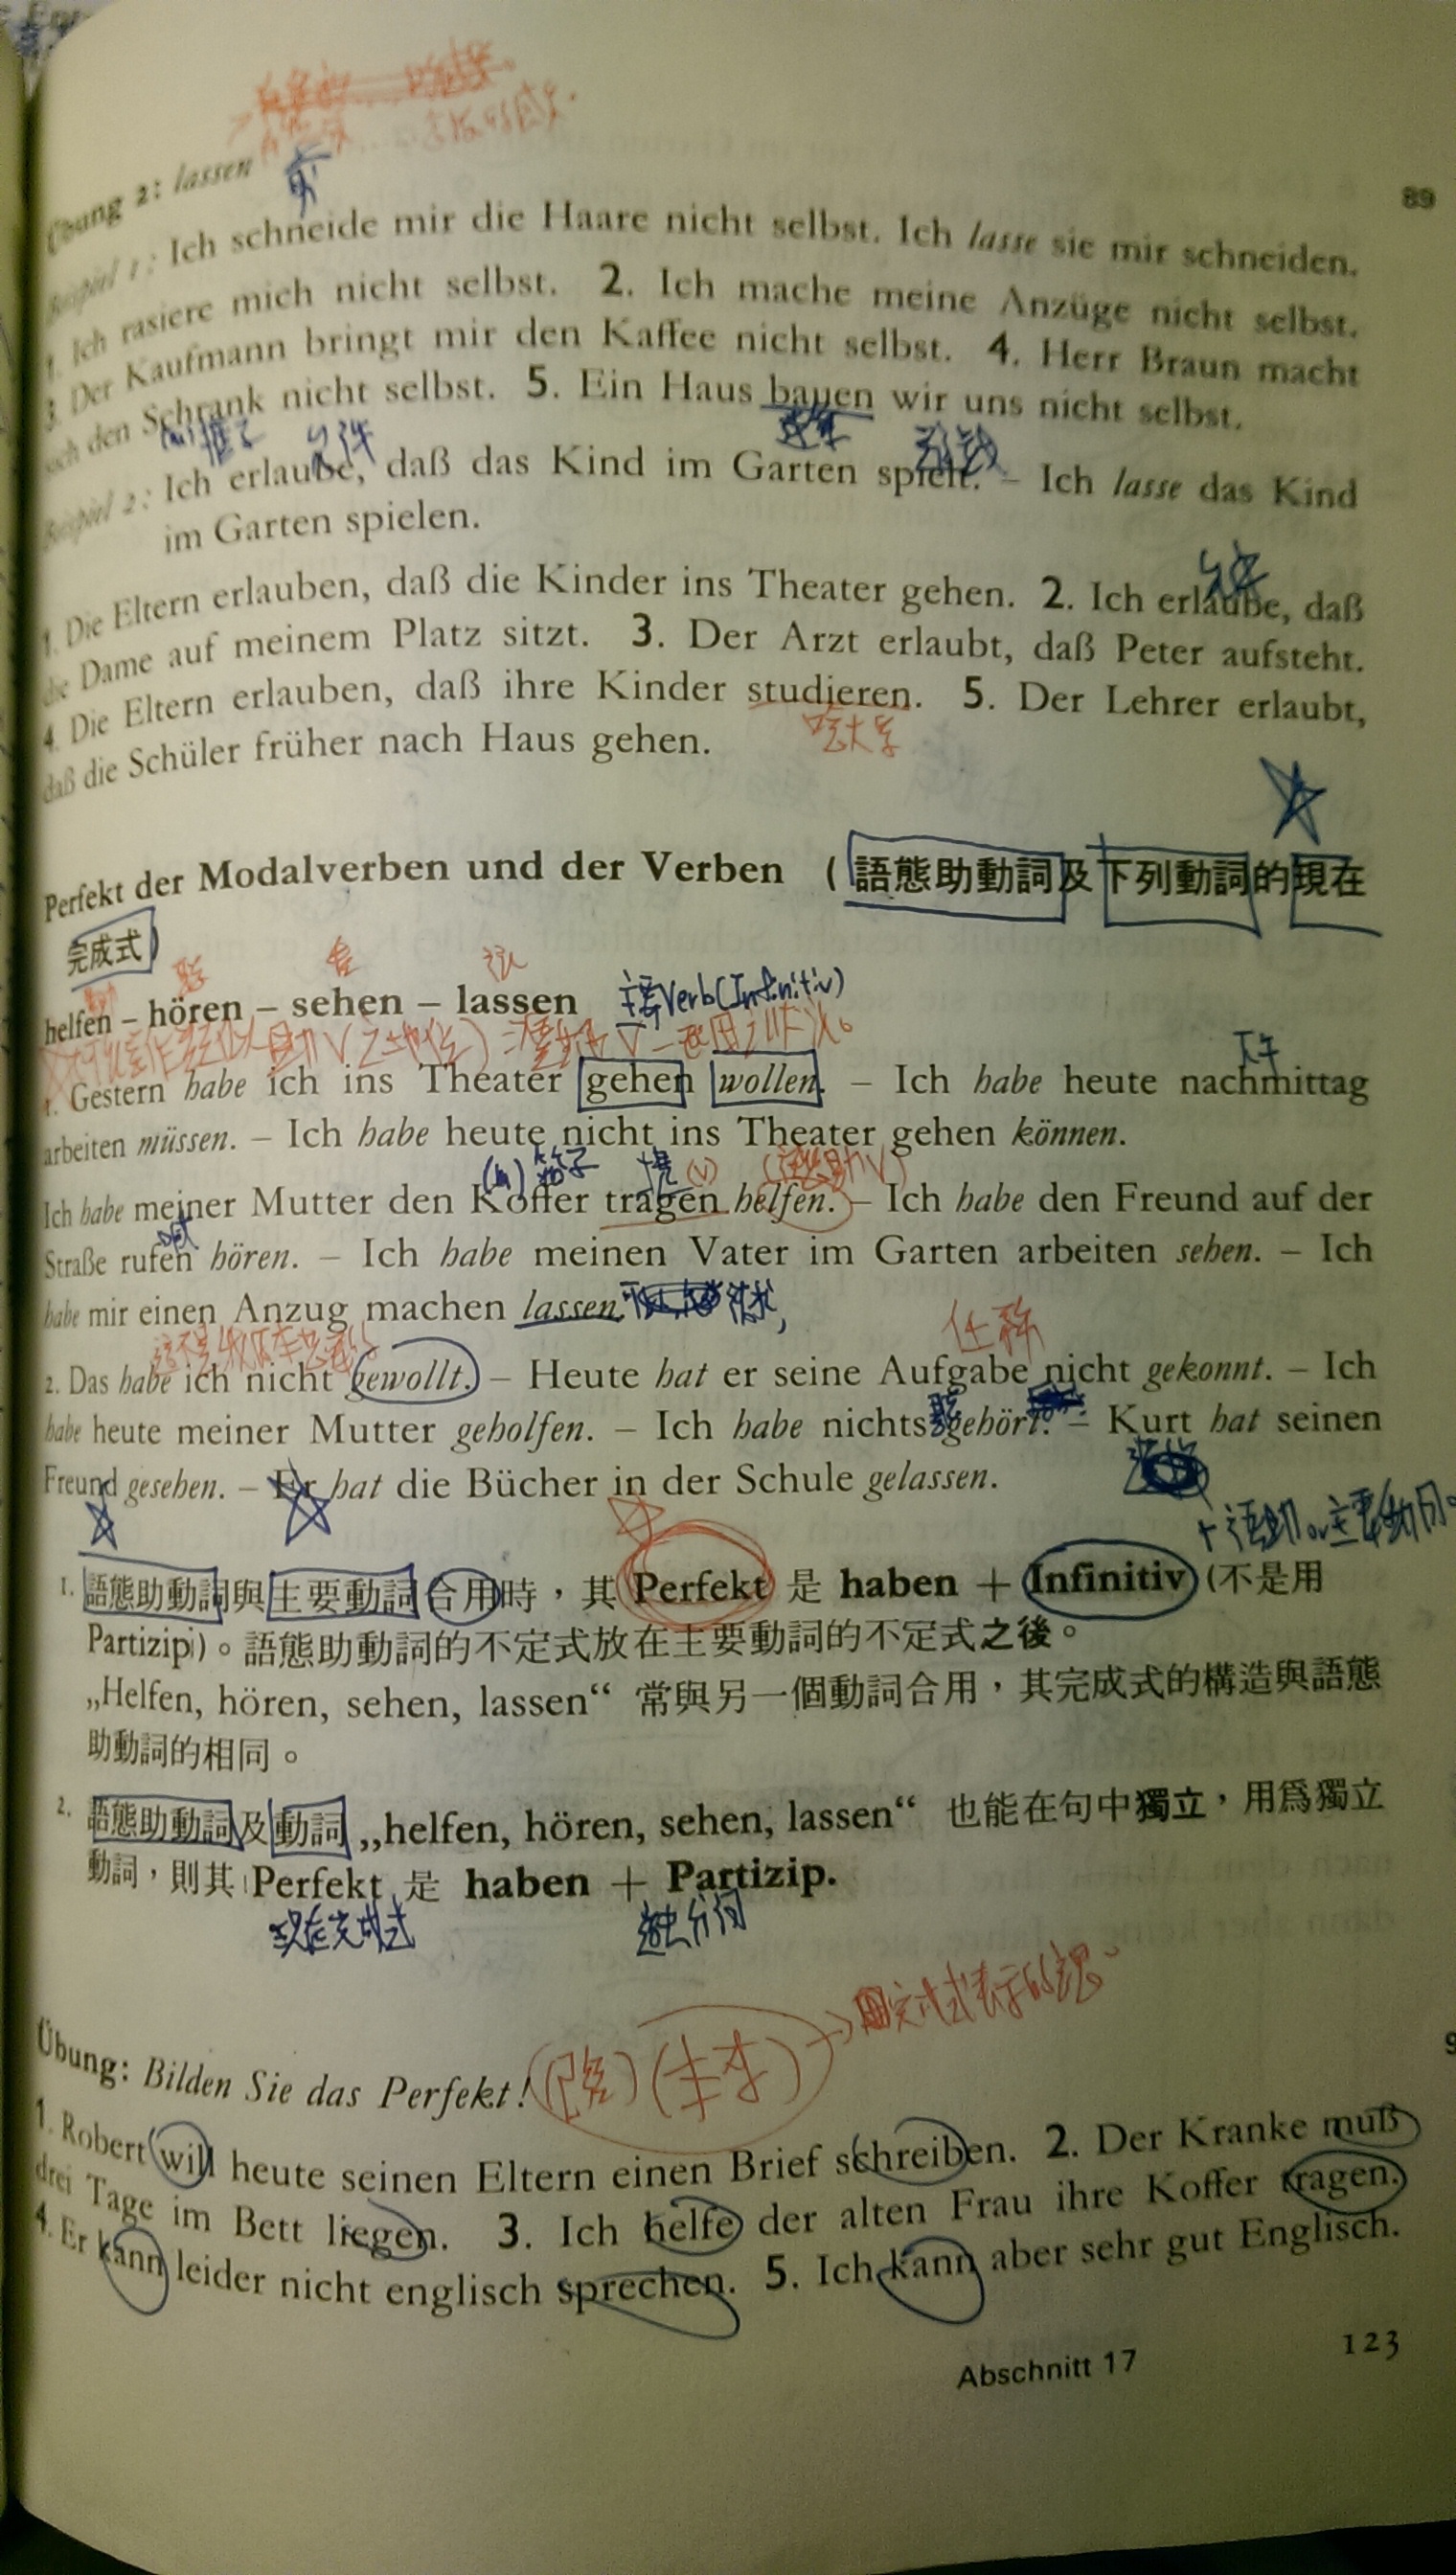 Übung 2: lassen
89
前
Beispiel 1: Ich schneide mir die Haare nicht selbst. Ich lasse sie mir schneiden.
1. Ich rasiere mich nicht selbst. 2. Ich mache meine Anzüge nicht selbst.
3. Der Kaufmann bringt mir den Kaffee nicht selbst. 4. Herr Braun macht
sich den Schrank nicht selbst. 5. Ein Haus bauen wir uns nicht selbst.
允许
Beispiel 2: Ich erlaube, daß das Kind im Garten spielt. – Ich lasse das Kind
im Garten spielen.
1. Die Eltern erlauben, daß die Kinder ins Theater gehen. 2. Ich erlaube, daß
die Dame auf meinem Platz sitzt. 3. Der Arzt erlaubt, daß Peter aufsteht.
4. Die Eltern erlauben, daß ihre Kinder studieren. 5. Der Lehrer erlaubt,
唸大学
daß die Schüler früher nach Haus gehen.
Perfekt der Modalverben und der Verben (語態助動詞及下列動詞的現在
完成式)
helfen – hören – sehen – lassen 接Verb(Infinitiv)
下午
1. Gestern habe ich ins Theater gehen wollen. – Ich habe heute nachmittag
arbeiten müssen. – Ich habe heute nicht ins Theater gehen können.
Ich habe meiner Mutter den Koffer tragen helfen. – Ich habe den Freund auf der
Straße rufen hören. – Ich habe meinen Vater im Garten arbeiten sehen. – Ich
habe mir einen Anzug machen lassen.
任務
2. Das habe ich nicht gewollt. – Heute hat er seine Aufgabe nicht gekonnt. – Ich
habe heute meiner Mutter geholfen. – Ich habe nichts gehört. – Kurt hat seinen
Freund gesehen. – Er hat die Bücher in der Schule gelassen.
+语助or主要動詞。
1. 語態助動詞與主要動詞合用時，其 Perfekt 是 haben + Infinitiv (不是用
Partizip)。語態助動詞的不定式放在主要動詞的不定式之後。
„Helfen, hören, sehen, lassen“ 常與另一個動詞合用，其完成式的構造與語態
助動詞的相同。
2. 語態助動詞及動詞 „helfen, hören, sehen, lassen“ 也能在句中獨立，用爲獨立
動詞，則其 Perfekt 是 haben + Partizip.
現在完成式 過去分詞
Übung: Bilden Sie das Perfekt!
1. Robert will heute seinen Eltern einen Brief schreiben. 2. Der Kranke muß
drei Tage im Bett liegen. 3. Ich helfe der alten Frau ihre Koffer tragen.
4. Er kann leider nicht englisch sprechen. 5. Ich kann aber sehr gut Englisch.
Abschnitt 17
123